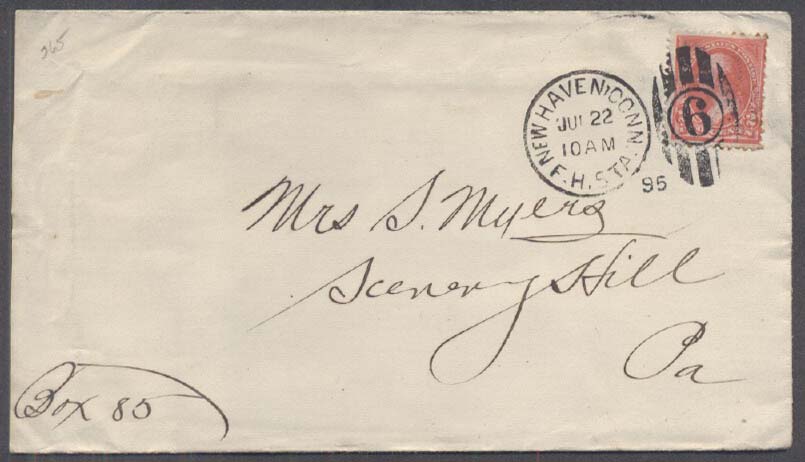 265
NEW HAVEN, CONN
JUL 22
10 AM
F.H. STA.
95
6
Mrs S. Myers
Scenery Hill
Pa
Box 85